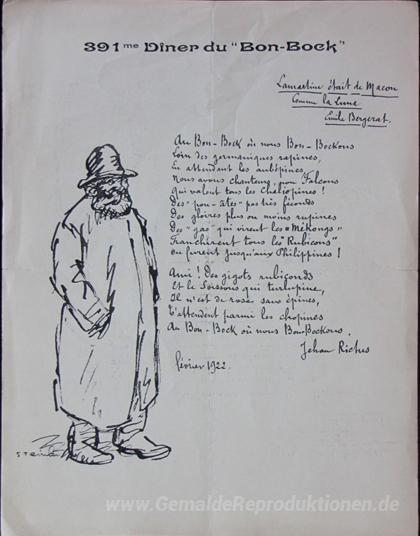 391me Dîner du "Bon-Bock"
Lamartine était de Macon
Comme la Lune
Emile Bergerat.
Au Bon-Bock où nous Bon-Bockons
Loin des germaniques rapines,
En attendant les aubépines,
Nous avons chanteurs pour Falcons
Qui valent tous les Chaliapines !
Des "pou-ètes" pas très féconds
Des gloires plus ou moins rupines
Des "gas" qui virent les "Mékongs"
Franchirent tous les "Rubicons"
Ou furent jusqu'aux Philippines !
Ami ! Des gigots rubiconds
Et le Soissons qui turlupine,
Il n'est de roses sans épines,
T'attendent parmi les chopines
Au Bon-Bock où nous Bon-Bockons.
Jehan Rictus
février 1922.
www.GemaldeReproduktionen.de